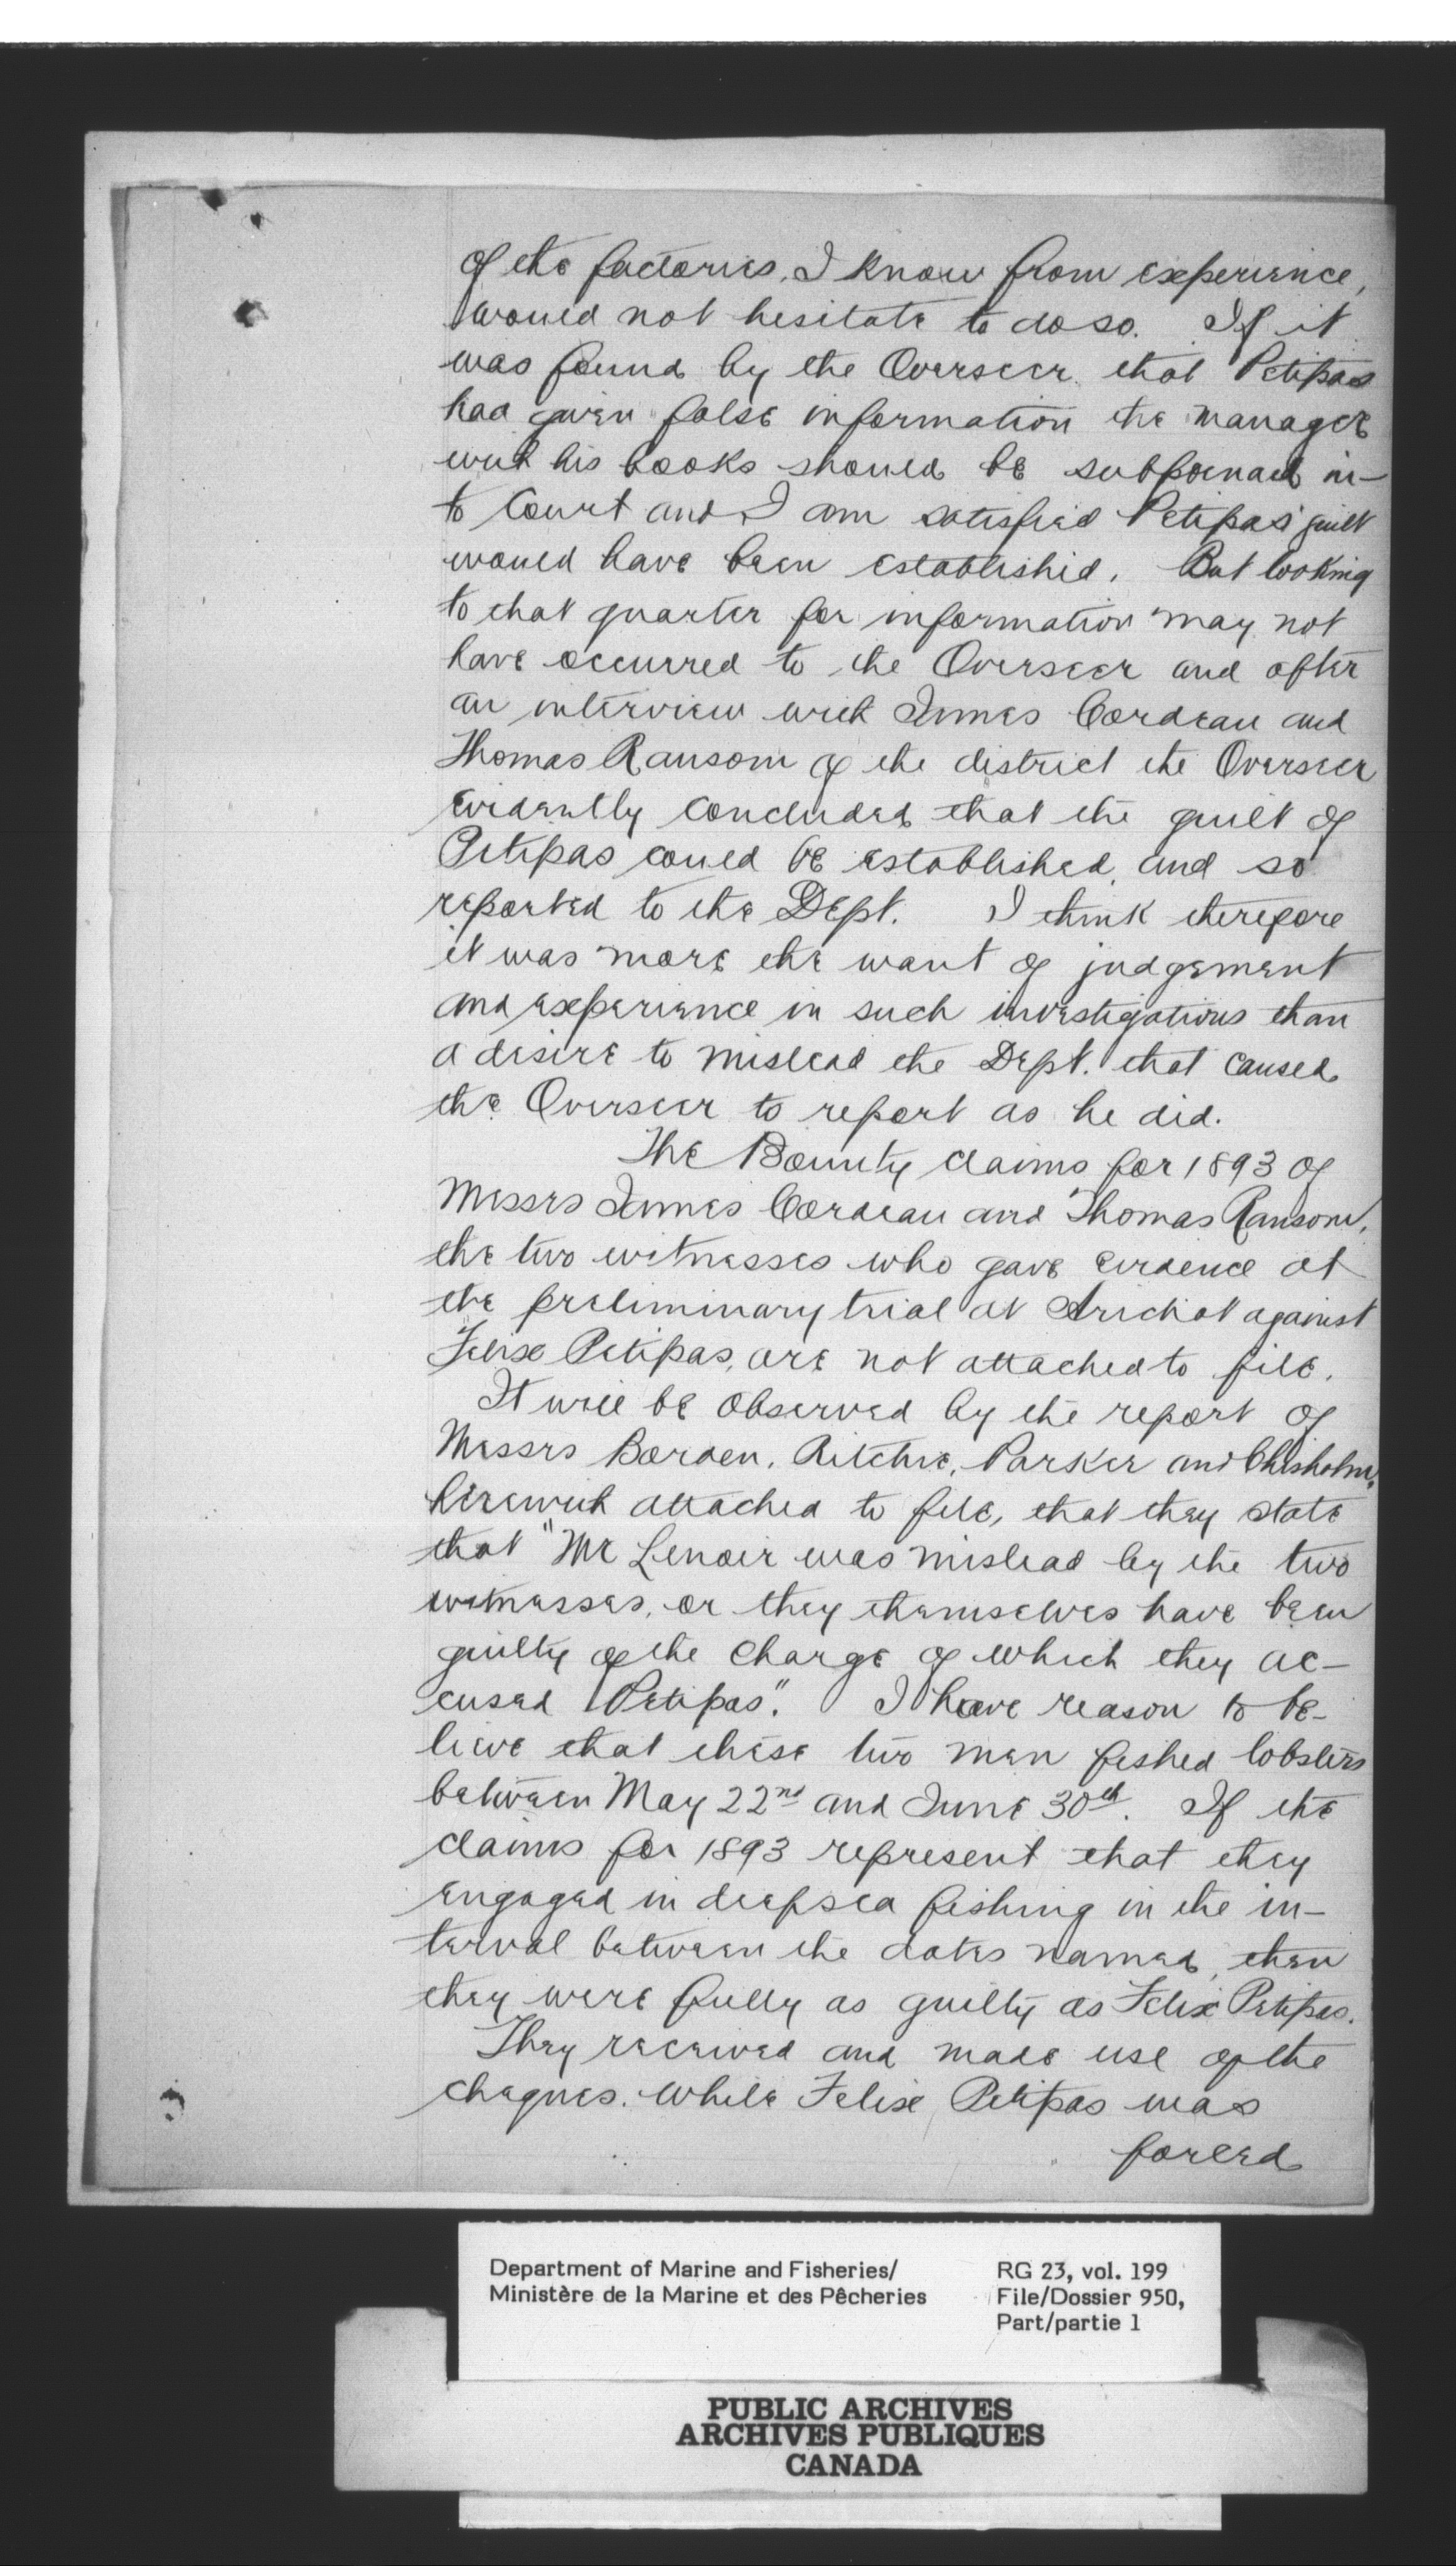 of the factories, I know from experience,
would not hesitate to do so. If it
was found by the Overseer that Petipas
had given false information the manager
with his books should be subpoenaed in-
to Court and I am satisfied Petipas' guilt
would have been established. But looking
to that quarter for information may not
have occurred to the Overseer and after
an interview with James Cordeau and
Thomas Ransom of the district the Overseer
evidently concluded that the guilt of
Petipas could be established, and so
reported to the Dept. I think therefore
it was more the want of judgement
and experience in such investigations than
a desire to mislead the Dept. that caused
the Overseer to report as he did.
The Bounty claims for 1893 of
Messrs James Cordeau and Thomas Ransom,
the two witnesses who gave evidence at
the preliminary trial at Arichat against
Felix Petipas, are not attached to file.
It will be observed by the report of
Messrs Borden, Ritchie, Parker and Chisholm,
herewith attached to file, that they state
that "Mr Lenoir was mislead by the two
witnesses, or they themselves have been
guilty of the charge of which they ac-
cused Petipas". I have reason to be-
lieve that these two men fished lobsters
between May 22nd and June 30th. If the
claims for 1893 represent that they
engaged in deepsea fishing in the in-
terval between the dates named, then
they were fully as guilty as Felix Petipas.
They received and made use of the
cheques. While Felix Petipas was
forced
Department of Marine and Fisheries/
Ministère de la Marine et des Pêcheries
RG 23, vol. 199
File/Dossier 950,
Part/partie 1
PUBLIC ARCHIVES
ARCHIVES PUBLIQUES
CANADA